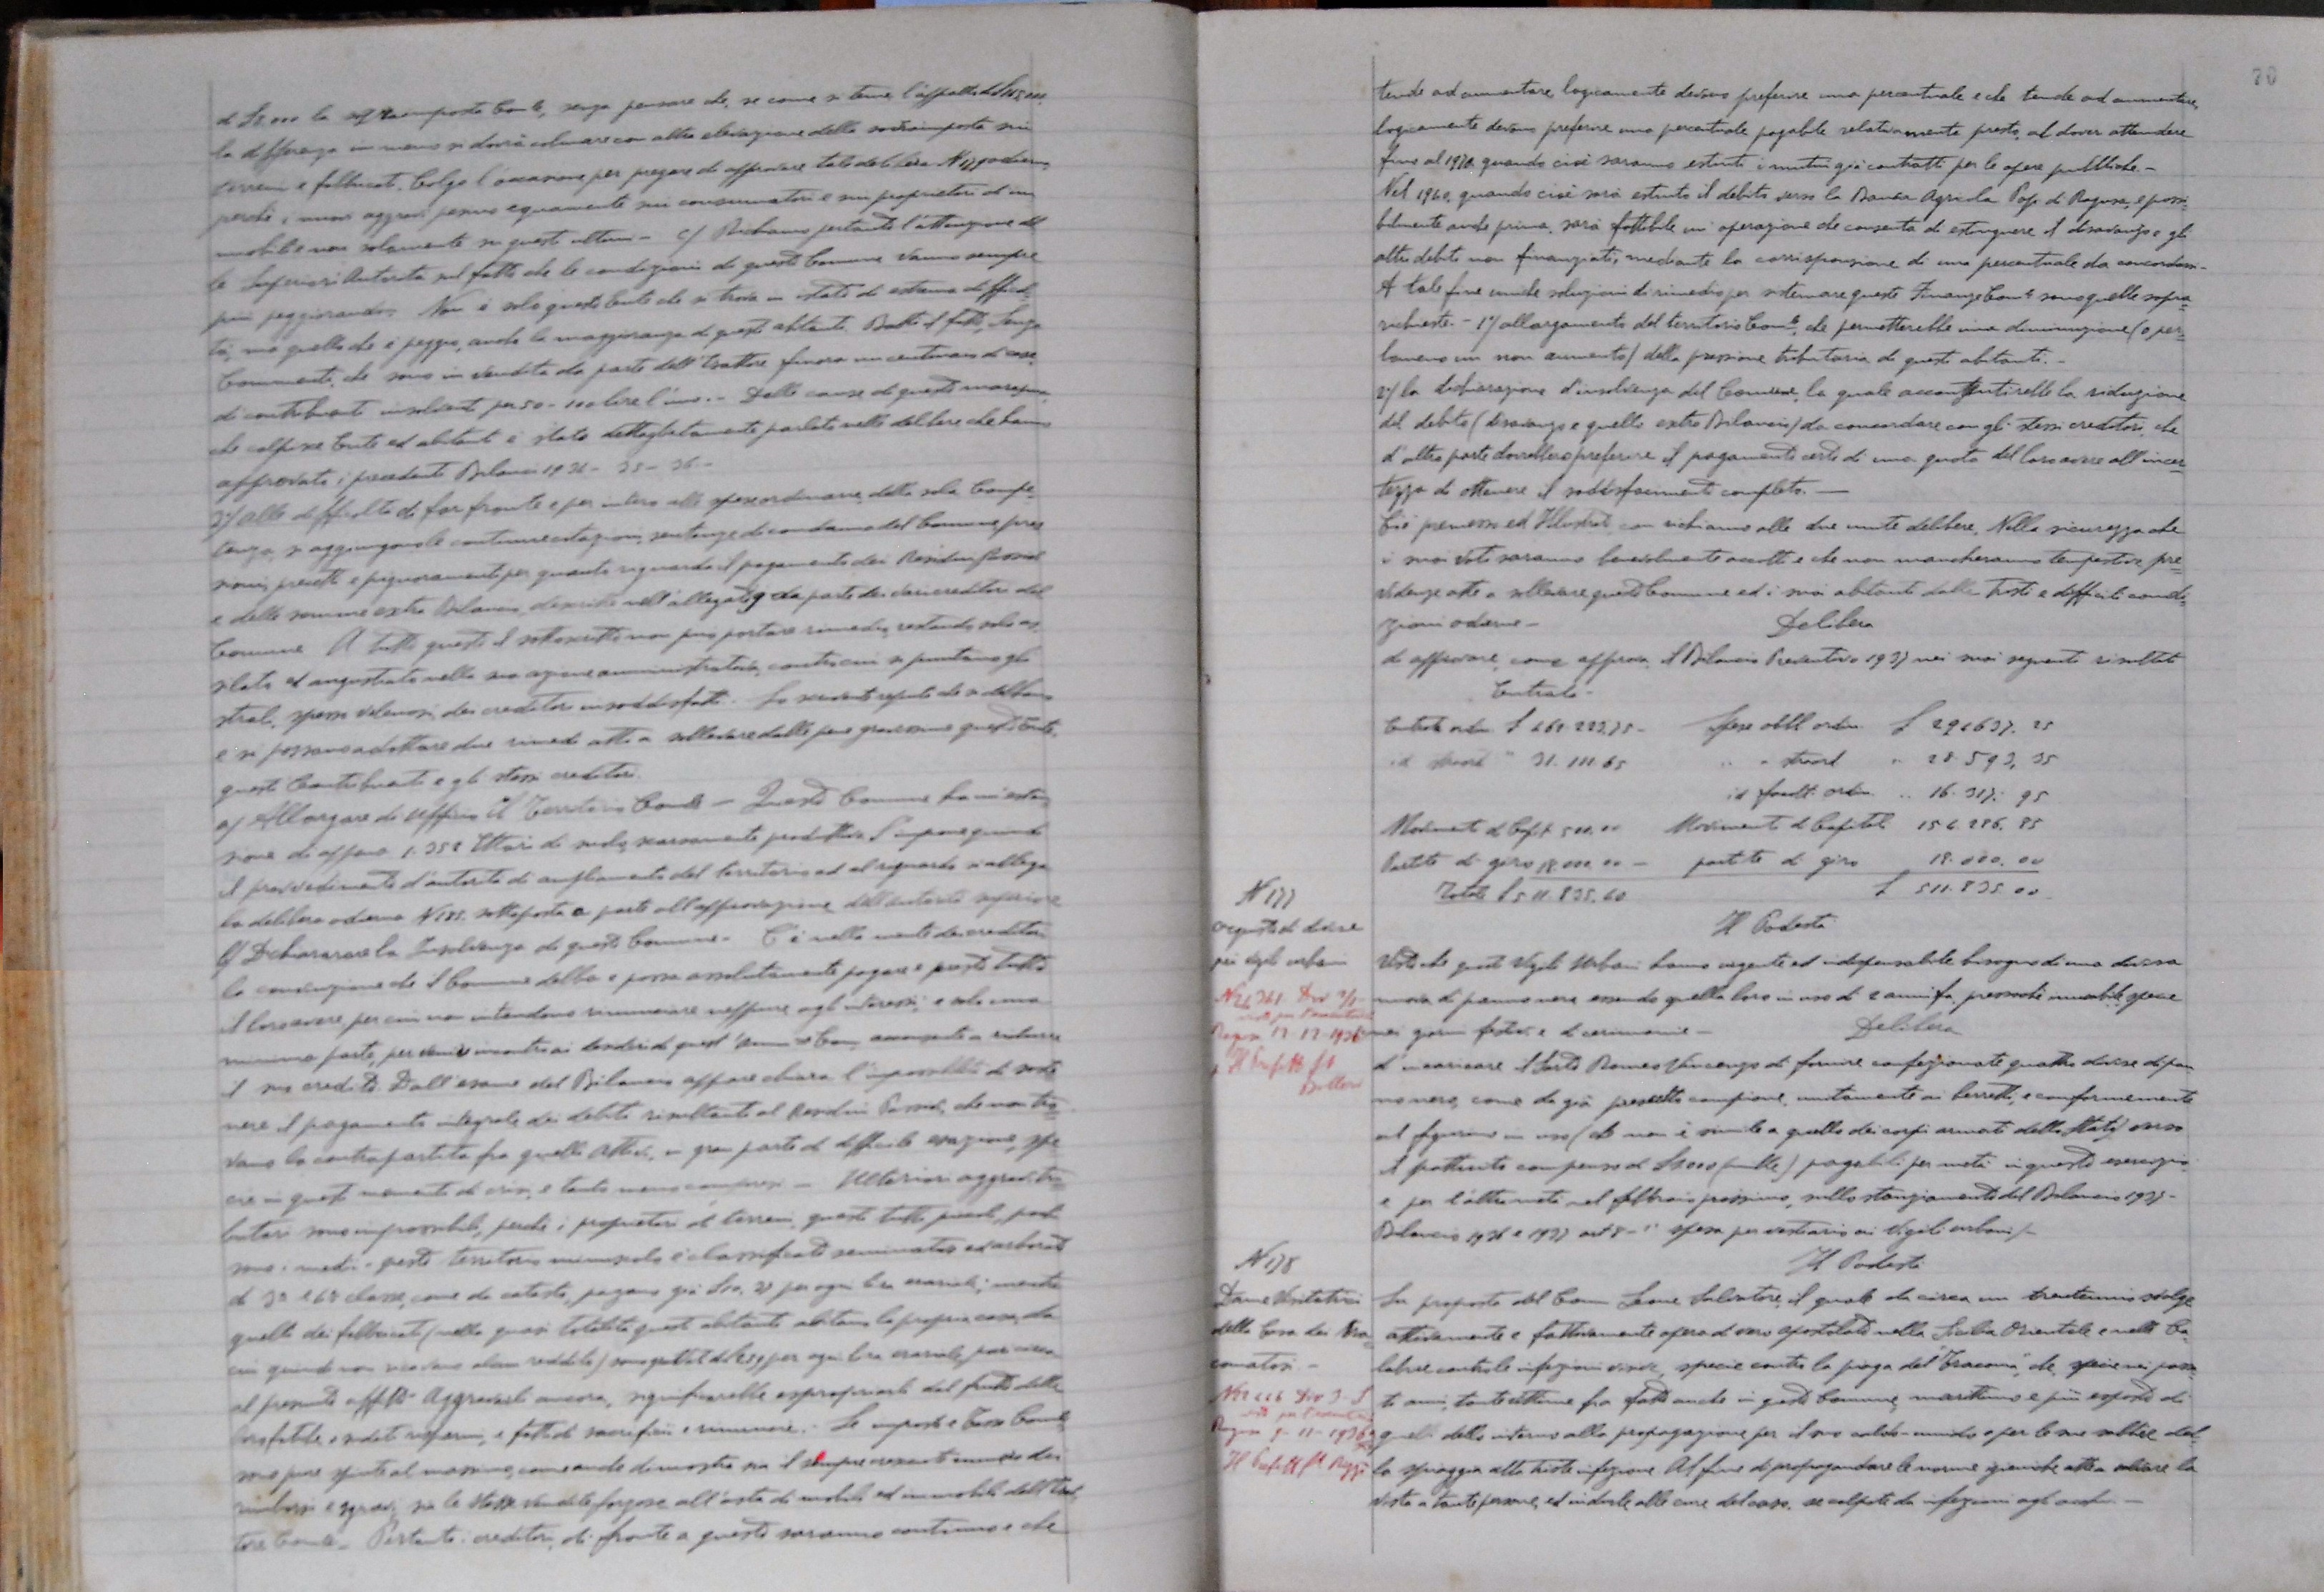 la differenza in meno si dovrà colmare con altra elevazione della sovraimposta sui
terreni e fabbricati. Colgo l'occasione per pregare di approvare tale delibera N 173 odierna
perché i nuovi aggravi pesino equamente sui consumatori e sui proprietari di im
mobili e non solamente su questi ultimi - c/ Richiamo pertanto l'attenzione del
le Superiori Autorità sul fatto che le condizioni di questo Comune vanno sempre
più peggiorando. Non è solo questo Ente che si trova in stato di estrema difficol
tà, ma quello che è peggio, anche la maggioranza di questi abitanti. Basti il fatto, senza
Commenti, che sono in vendita da parte dell'Esattore finora un centinaio di case
di contribuenti insolventi per 50 - 100 lire l'uno. - Delle cause di questo marasma
che colpisce Ente ed abitanti è stato dettagliatamente parlato nelle delibere che hanno
approvato i precedenti Bilanci 1934 - 35 - 36 -
3°/ Alle difficoltà di far fronte e per intero alle spese ordinarie della sola Compe
tenza, si aggiungono le continue citazioni, sentenze di condanna del Comune,
precetti e pignoramenti per quanto riguarda il pagamento dei Residui Passivi
e delle somme extra Bilancio, descritte nell'allegato g da parte dei vari creditori del
Comune. A tutto questo il sottoscritto non può portare rimedio, restando solo as
sillato ed angustiato nella sua azione amministrativa, contro cui si puntano gli
strali, spesso velenosi, dei creditori insoddisfatti. - Lo scrivente reputa che si debbano
e si possano adottare due rimedi atti a sollevare dalle pene gravissime questo Ente,
questi Contribuenti e gli stessi creditori.
a/ Allargare di Ufficio il Territorio Com/le - Questo Comune ha un'esten
sione di appena 1.352 Ettari di suolo, scarsamente produttivo. S'impone quindi
il provvedimento d'autorità di ampliamento del territorio ed al riguardo si allega
la delibera odierna N 185 sottoposta a parte all'approvazione dell'autorità superiore
b/ Dichiarare la Insolvenza di questo Comune - C'è nella mente dei creditori
la convinzione che il Comune debba e possa assolutamente pagare e presto tutto
il loro avere, per cui non intendono rinunciare neppure agli interessi; e solo una
minima parte, per venire incontro ai desideri di quest'Amm. Com. acconsente a ridurre
il suo credito. Dall'esame del Bilancio appare chiara l'impossibilità di soste
nere il pagamento integrale dei debiti risultanti al Residui Passivi, che non tro
vano la contropartita fra quelli Attivi, in gran parte di difficile esazione, spe
cie in questi momenti di crisi, e tanto meno compensi - Ulteriori aggravi tri
butari sono impossibili, perché i proprietari di terreni, questi tutti piccoli, pochi
sono i medi - questo territorio minuscolo è classificato seminatorio ed arborato
di 3ª e 4ª classe, come da catasto, pagano già per ogni lira erariale; mentre
quelli dei fabbricati (nella quasi totalità questi abitanti abitano la propria casa, da
cui quindi non ricavano alcun reddito) sono gravati di per ogni lira erariale, pari circa
al presunto affitto. Aggravarli ancora, significherebbe espropriarli del frutto delle
loro fatiche e sudati risparmi, e fatti di sacrifici e rinuncie. - Le imposte e Tasse Com/li
sono pure spinte al massimo, come anche dimostra sia il sempre crescente numero dei
rimborsi e sgravi, sia le stesse vendite forzose all'asta di mobili ed immobili dell'Esat
tore Com/le - Pertanto i creditori, di fronte a questo saranno continuo e che
20
tende ad aumentare, logicamente devono preferire una percentuale e che tende ad aumentare,
logicamente devono preferire una percentuale pagabile relativamente presto, al dover attendere
fino al 1970, quando cioè saranno estinti i mutui già contratti per le opere pubbliche. -
Nel 1940, quando cioè sarà estinto il debito verso la Banca Agricola Pop. di Ragusa, e possi
bilmente anche prima, sarà fattibile un'operazione che consenta di estinguere il disavanzo e gli
altri debiti non finanziati, mediante la corrisponsione di una percentuale da concordarsi -
A tale fine uniche soluzioni di rimedio per sistemare queste Finanze Com/li sono quelle sopra
richieste. - 1°/ allargamento del territorio Com/le, che permetterebbe una diminuzione (o per
lomeno un non aumento) della pressione tributaria di questi abitanti. -
2°/ la dichiarazione d'insolvenza del Comune, la quale acconsentirebbe la riduzione
del debito (disavanzo e quello extra Bilancio) da concordare con gli stessi creditori, che
d'altra parte dovrebbero preferire il pagamento certo di una quota del loro avere all'incer
tezza di ottenere il soddisfacimento completo. -
Ciò premesso ed Illustrato con richiamo alle due unite delibere. Nella sicurezza che
i suoi voti saranno benevolmente accolti e che non mancheranno tempestive prov
videnze atte a sollevare questo Comune ed i suoi abitanti dalle tristi e difficili condi
zioni odierne - Delibera
di approvare, come approva, il Bilancio Preventivo 1937 nei suoi seguenti risultati
Entrate -
Entrate ordin. £ 461.223,75 - Spese obbl. ordin. £ 294637.25
id straord " 31.111.65 " " straord " 28.593,35
id facolt. ordin. " 16.317.95
Movimenti di Cap/li 500.00 Movimento di Capitali 154.286.85
Partite di giro 18.000.00 - partite di giro 18.000.00
Totale £ 511.835.40 £ 511.835.00
N 177
Acquisto di divise
pei vigili urbani
Ragusa 17-12-1936
Il Prefetto f/to
Il Podestà
Visto che questi Vigili Urbani hanno urgente ed indispensabile bisogno di una divisa
nuova di panno nero, essendo quella loro in uso di 2 anni fa, pressoché inservibile, specie
nei giorni festivi e di cerimonie - Delibera
d'incaricare il Sarto Romeo Vincenzo di fornire confezionate quattro divise di pan
no nero, come da già prescelto campione, unitamente ai berretti, e conformemente
al figurino in uso (che non è simile a quello dei corpi armati dello Stato) verso
il pattuito compenso di £ 1000 (mille) pagabili per metà in questo esercizio
e per l'altra metà nel febbraio prossimo, sullo stanziamento del Bilancio 1937 -
Bilancio 1936 e 1937 art 8 - spesa per vestiario ai Vigili urbani /-
N 178
Dame Visitatrici
della Casa dei Tra
comatosi -
Ragusa 9-11-1936
Il Prefetto f/to
Il Podestà
Su proposta del Comm Leone Salvatore, il quale da circa un trentennio svolge
attivamente e fattivamente opera di vero apostolato nella Sicilia Orientale e nelle Ca
labrie contro le infezioni visive, specie contro la piaga del "Tracoma", che, specie nei passa
ti anni, tante vittime fra fatto anche in questo Comune, marittimo e più esposto di
quelli dello interno alla propagazione per il suo caldo-umido e per le sue sabbie del
la spiaggia alla triste infezione. Al fine di propagandare le norme igieniche atte a salvare la
vista a tante persone, ed indurle alle cure del caso, se colpite da infezioni agli occhi. -